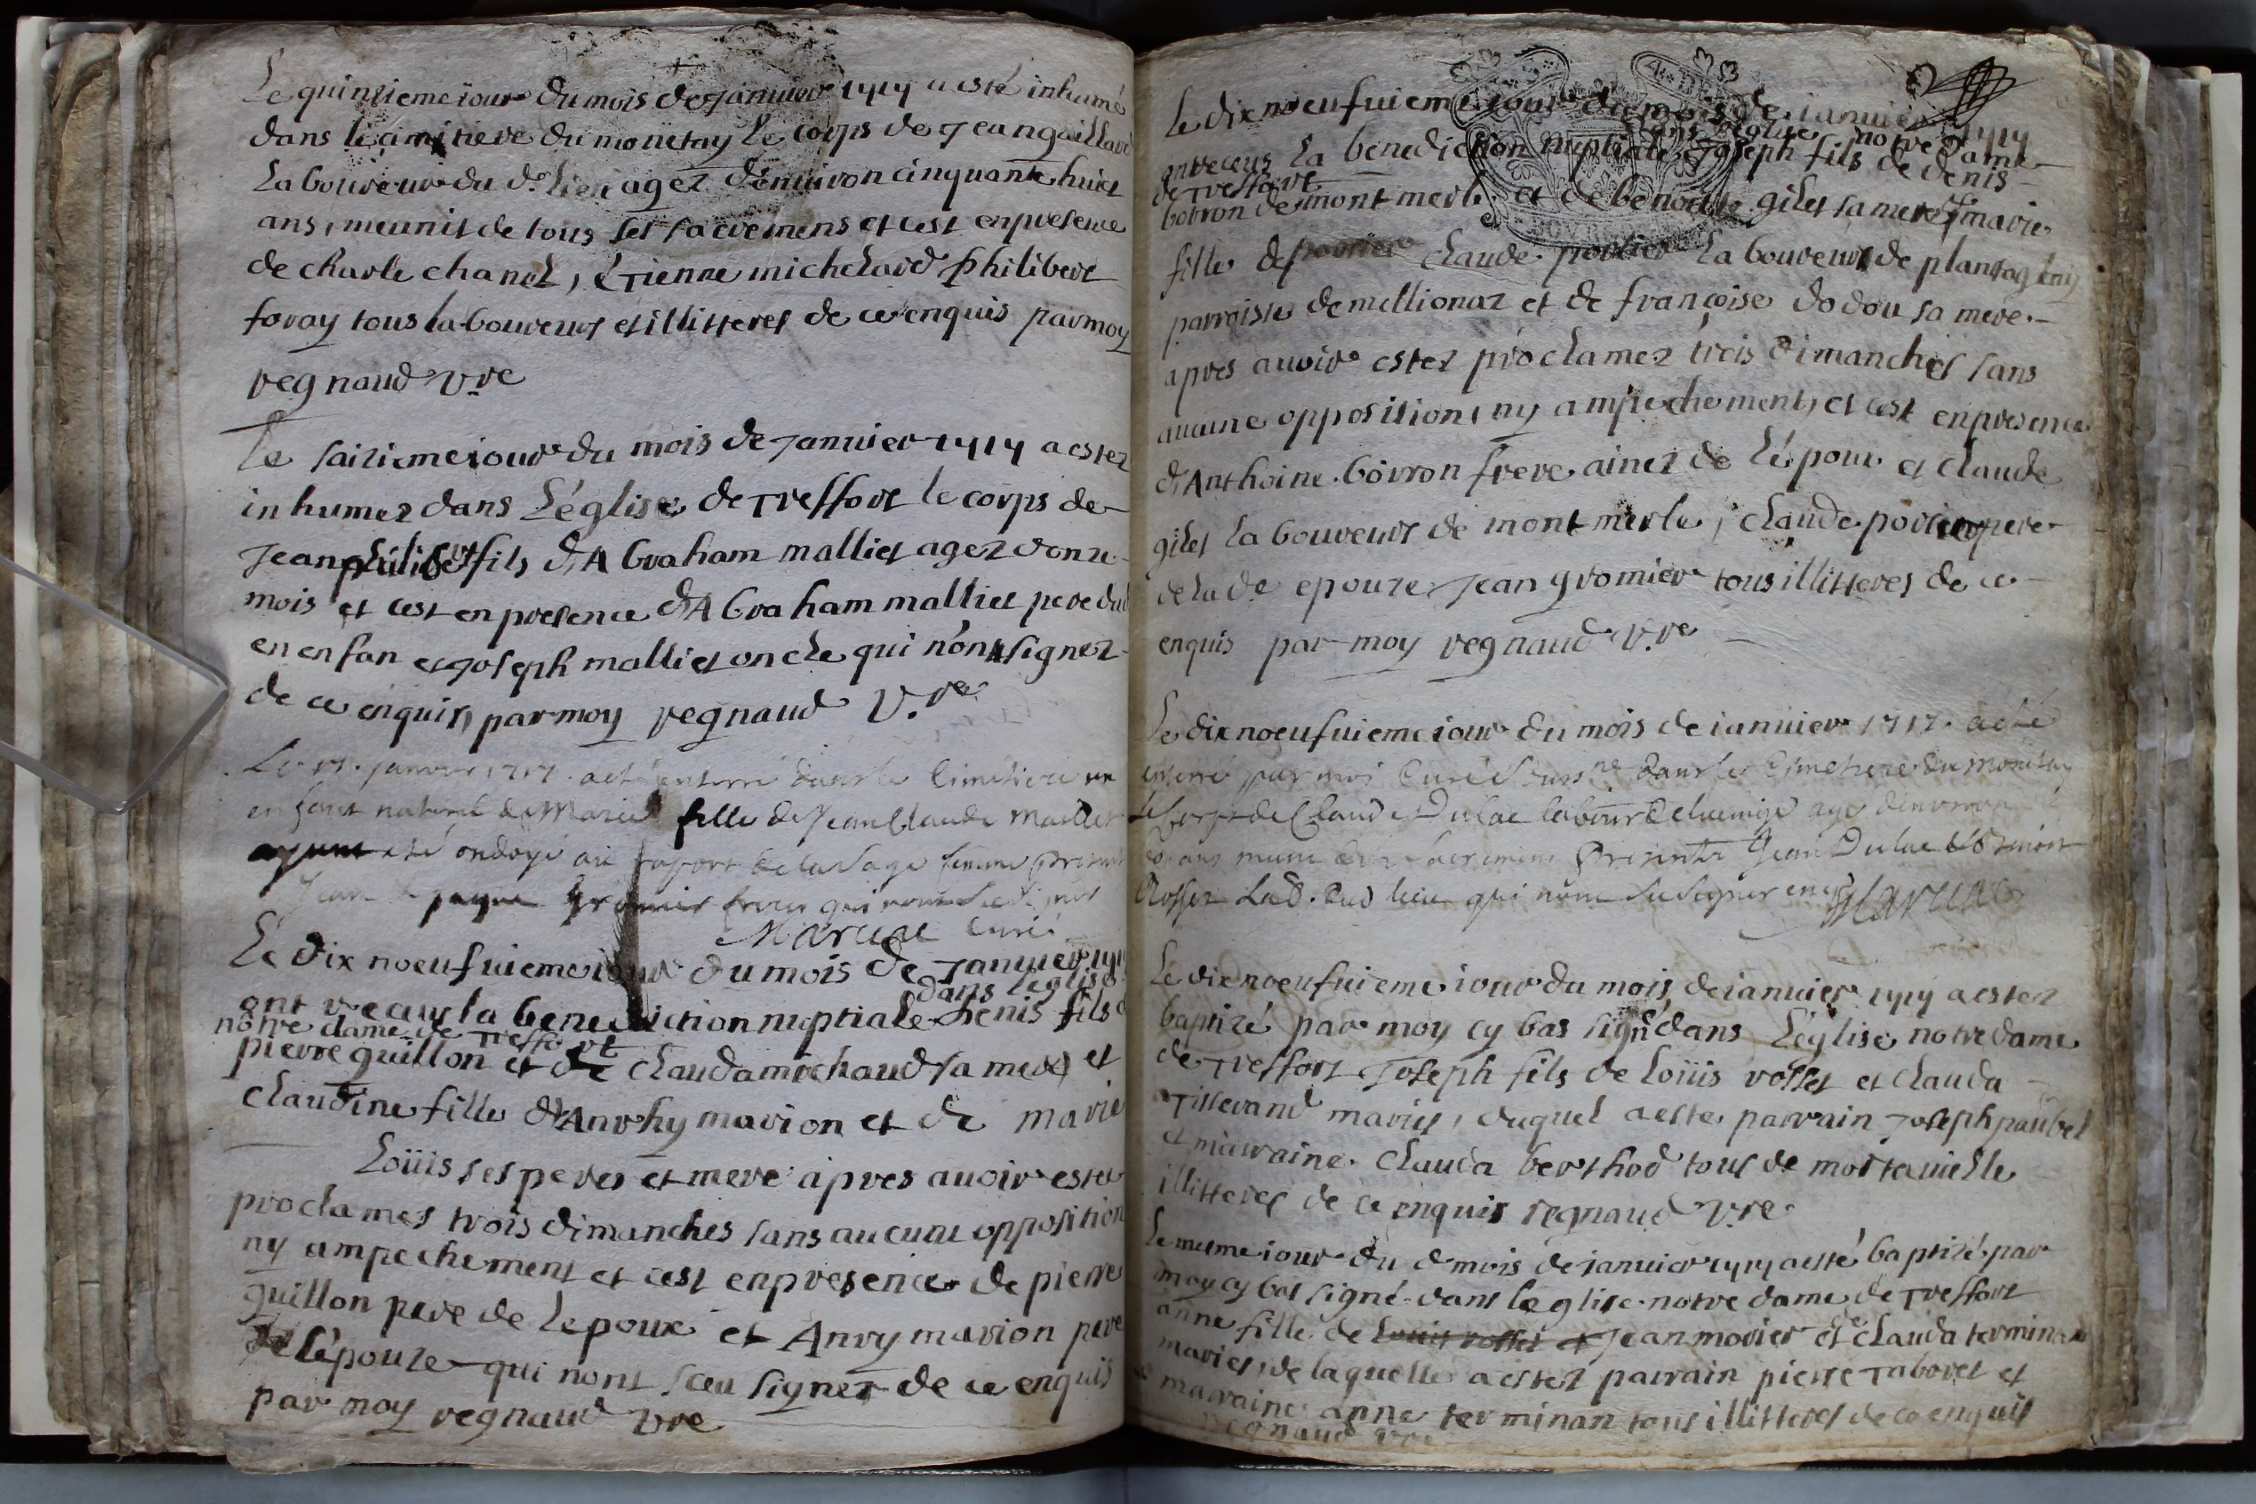 Le quinzieme iour du mois de Janvier 1717 a esté inhumé
dans le cimitiere du monetay le corps de Jean gaillard
laboureur du d. lieu agez denuiron cinquante huict
ans, meunit de tous ses sacremens et cest enpresence
de charle chanel, étienne michelard philibert
foray tous laboureurs et illitteres de ce enquis par moy
regnaud v.re
Le saizieme iour du mois de Januier 1717 a estez
inhumez dans l'église de Treffort le corps de
Jean philibert fils d'Abraham malliet agez donze
mois et cest en presence d'Abraham malliet pere dud
en enfan et Joseph malliet oncle qui n'ont signez
de ce enquis, par moy regnaud V.re
Le 17. janvier 1717. a eté enterré dans le Cimetiere un
enfant naturel de Marie fille de Jean Claude Maillet
ayant eté ondoyé au raport de la sage femme
Jean
Maruel Curé
Le dix noeufuieme iour du mois de Januier 1717
dans l'eglise
ont receus la benediction nuptiale Denis fils de
nôtre dame de Treffort
pierre guillon et de claudamichaud sa mere et
claudine fille d'Anrhy marion et de marie
Loüis ses peres et mere apres auoir estez
proclames trois dimanches sans aucune opposition
ny ampechement et cest enpresence de pierre
guillon pere de lepoux et Anry marion pere
de l'épouze qui nont sceu signer de ce enquis
par moy regnaud vre
Le dix noeufuieme iour du mois de ianuier 1717
dans l'eglise notre dame
ont receus la benediction nuptiale Joseph fils de denis
de Treffort
borron de mont merle et de benoitte gilet sa mere et marie
fille de claude portier laboureur de plantagleny
parroisse de mellionaz et de françoise dodou sa mere
apres auoir estez proclamez trois dimanches sans
aucune opposition, ny ampechement, et cest enpresence
d'Anthoine borron frere ainez de l'épour et claude
gilet laboureurs de mont merle, claude portier pere
de la de epouze Jean gromier tous illitteres de ce
enquis par moy regnaud v.re
Le dix noeufuieme iour du mois de ianuier 1717. a eté
enterré par moi Curé dans le Cimetiere du Monetay
le Corps de Claude Dulac agé denuiron
ans muni des sacremens Jean Dulac
Rosset qui n'ont su signer enquis Maruel
Le dix noeufuieme iour du mois de ianuier 1717 a estez
baptizé par moy cy bas signé dans l'église notre dame
de Treffort Joseph fils de Loüis rosset et clauda
Tisserand maries, duquel a este parrain Joseph paubel
et marraine clauda berthod tous de mortauielle
illitteres de ce enquis regnaud v.re
Le mesme iour du d mois de ianuier 1717 a esté baptizé par
moy cy bas signé dans leglise notre dame de Treffort
anne fille de Louis rosset et Jean morier et clauda terminan
maries, de laquelle a estez parrain pierre Taboret et
marraine anne terminan tous illitteres de ce enquis
regnaud vre